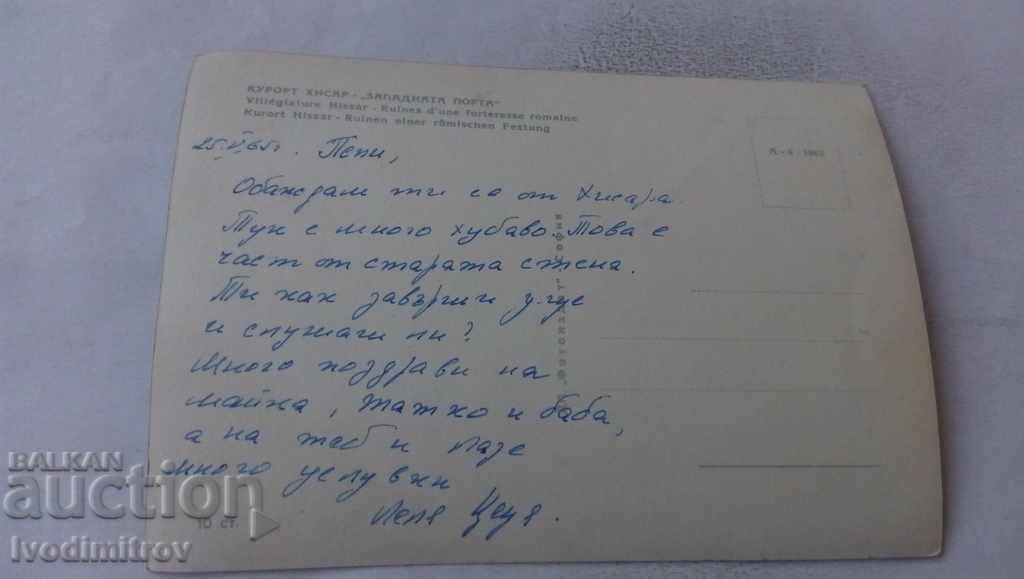 КУРОРТ ХИСАР - „ЗАПАДНАТА ПОРТА"
Villégiature Hissar - Ruines d'une forteresse romaine
Kurort Hissar - Ruinen einer römischen Festung
25.VI.65г. Пепи,
Обаждам ти се от Хисаря.
Тук е много хубаво. Това е
част от старата стена.
Ти как завърши
и слушаш ли?
Много поздрави на
майка, татко и баба,
а на теб и
много целувки
Леля Цеця.
10 ст.
BALKAN
auction
Ivodimitrov